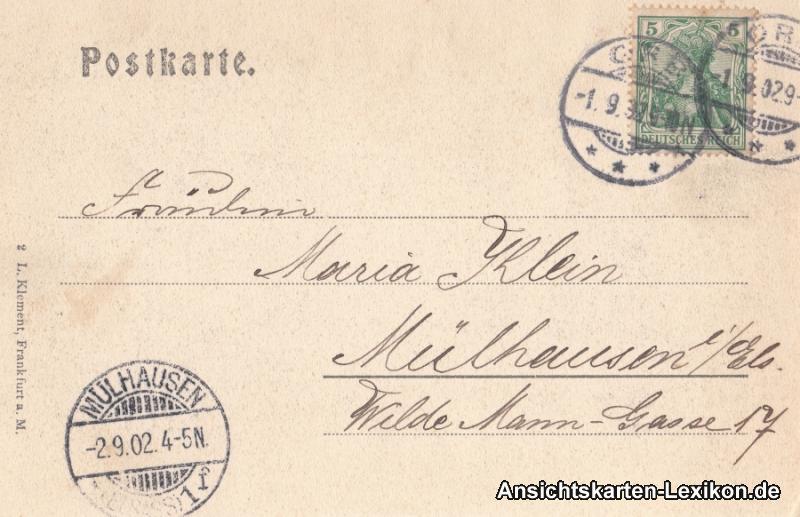 Postkarte.
5 5
DEUTSCHES REICH
-1.9.02
-1.9.02.9-
Fräulein
Maria Klein
Mülhausen i/Els.
Wilde Mann-Gasse 17
2 L. Klement, Frankfurt a. M.
MÜLHAUSEN
-2.9.02.4-5N.
1f
Ansichtskarten-Lexikon.de